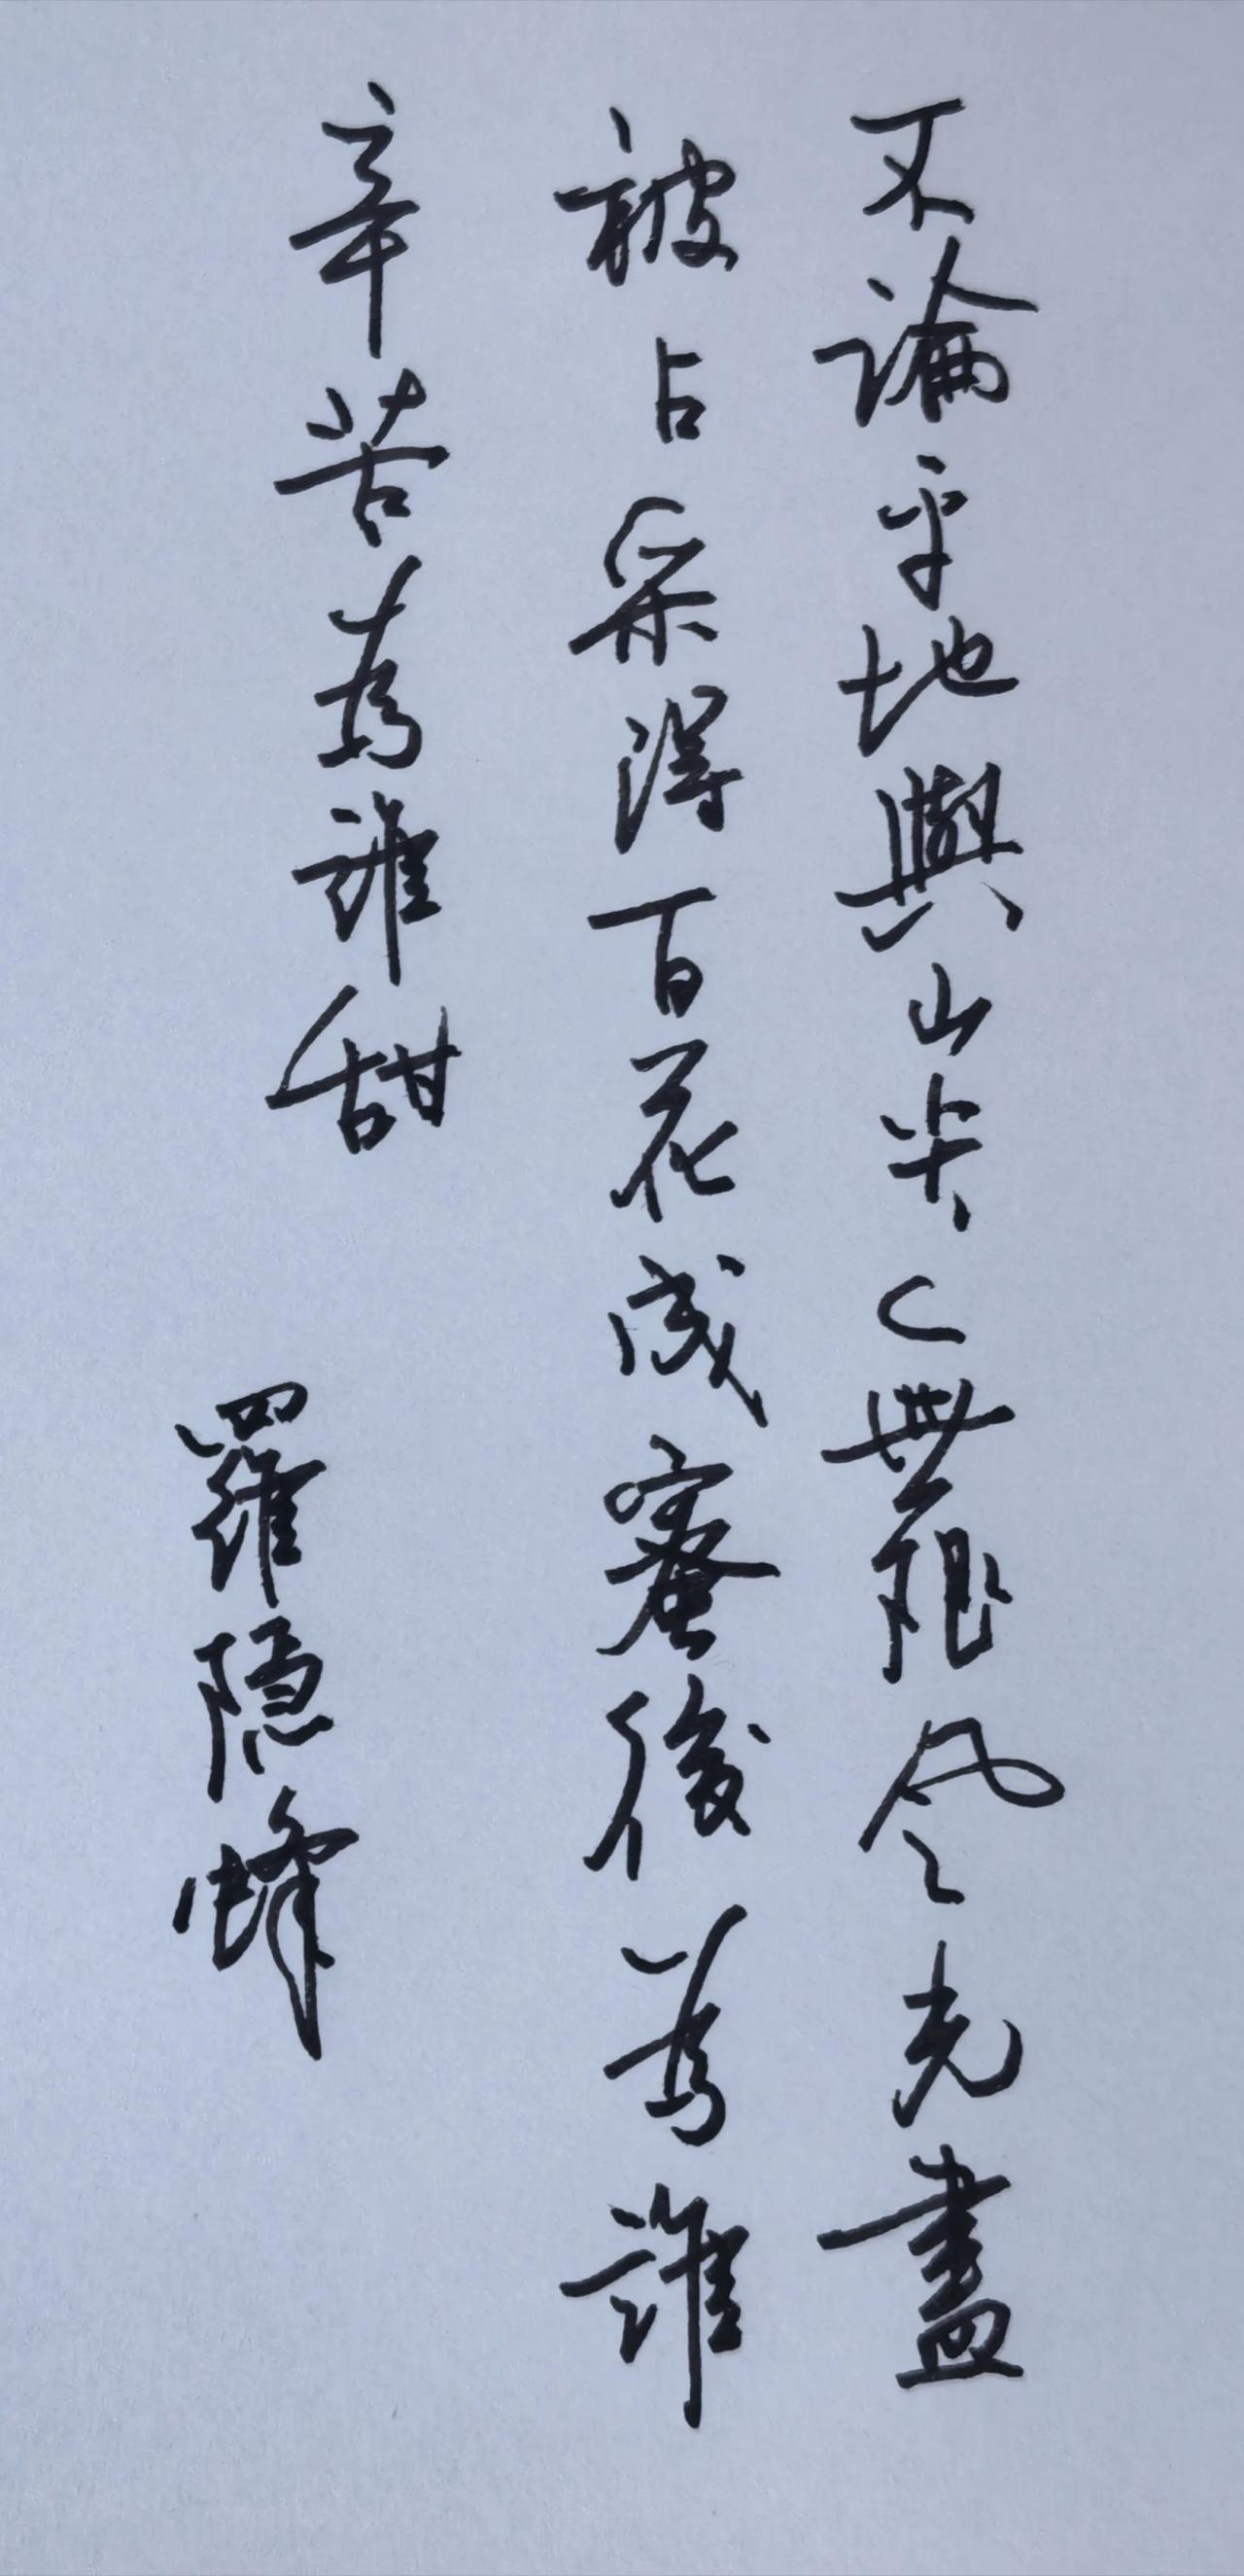 不論平地與山尖無限風光盡
被占采得百花成蜜後為誰
辛苦為誰甜
羅隐蜂